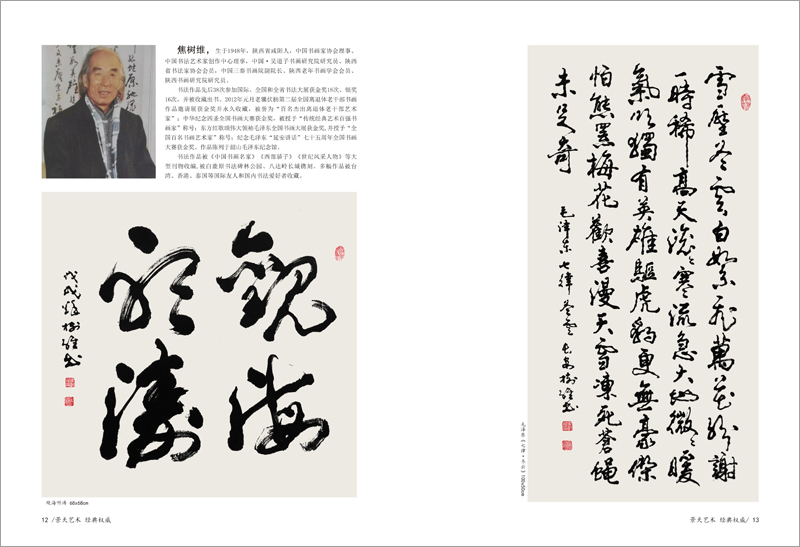 焦树维，生于1948年，陕西省咸阳人，中国书画家协会理事、
中国书法艺术家创作中心理事，中国·吴道子书画研究院研究员、陕西
省书法家协会会员，中国三秦书画院副院长、陕西老年书画学会会员、
陕西书画研究院研究员。
书法作品先后38次参加国际、全国和全省书法大展获金奖18次、银奖
16次，并被收藏出书。2012年元月老骥伏枥第二届全国离退休老干部书画
作品邀请展获金奖并永久收藏，被誉为“百名杰出离退休老干部艺术
家”；中华纪念西圣全国书画大赛获金奖，被授予“传统经典艺术百强书
画家”称号；东方红歌颂伟大领袖毛泽东全国书画大展获金奖,并授予“全
国百名书画艺术家”称号；纪念毛泽东“延安讲话”七十五周年全国书画
大赛获金奖，作品陈列于韶山毛泽东纪念馆。
书法作品被《中国书画名家》《西部骄子》《世纪风采人物》等大
型刊物收编,被白鹿原书法碑林公园、八达岭长城镌刻，多幅作品被台
湾、香港、泰国等国际友人和国内书法爱好者收藏。
觀海
聽濤
戊戌焦樹維書
观海听涛 68x68cm
12 /景天艺术 经典权威
雪壓冬雲白絮飛萬花紛謝
一時稀高天滾滾寒流急大地微微暖
氣吹獨有英雄驅虎豹更無豪傑
怕熊羆梅花歡喜漫天雪凍死蒼蠅
未足奇
毛澤东七律冬雲長安樹維书
毛泽东《七律·冬云》136x68cm
景天艺术 经典权威/ 13